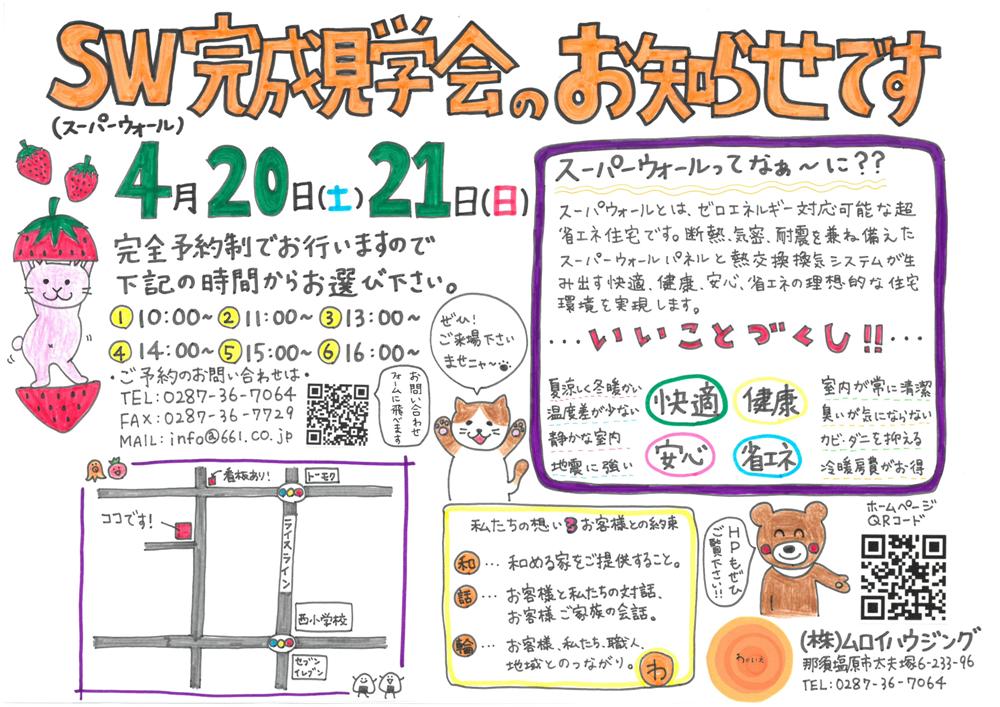 SW完成見学会のお知らせです
(スーパーウォール)
4月20日(土)21日(日)
完全予約制でお行いますので
下記の時間からお選び下さい。
①10:00~ ②11:00~ ③13:00~
④14:00~ ⑤15:00~ ⑥16:00~
・ご予約のお問い合わせは・
TEL:0287-36-7064
FAX:0287-36-7729
MAIL:info@661.co.jp
お問い合わせ
フォームに飛べます
ぜひ!
ご来場下さい
ませニャ~
スーパーウォールってなぁ~に??
スーパウォールとは、ゼロエネルギー対応可能な超
省エネ住宅です。断熱、気密、耐震を兼ね備えた
スーパーウォールパネルと熱交換換気システムが生
み出す快適、健康、安心、省エネの理想的な住宅
環境を実現します。
…いいことづくし!!…
夏涼しく冬暖かい
温度差が少ない
静かな室内
地震に強い
快適
健康
安心
省エネ
室内が常に清潔
臭いが気にならない
カビ・ダニを抑える
冷暖房費がお得
看板あり!
ドモク
ココです!
ライスライン
西小学校
セブン
イレブン
私たちの想い3お客様との約束
和…和める家をご提供すること。
話…お客様と私たちの対話、
お客様ご家族の会話。
輪…お客様、私たち、職人、
地域とのつながり。
わ
HPもぜひ
ご覧下さい!!
ホームページ
QRコード
わのいえ
(株)ムロイハウジング
那須塩原市太夫塚6-233-96
TEL:0287-36-7064